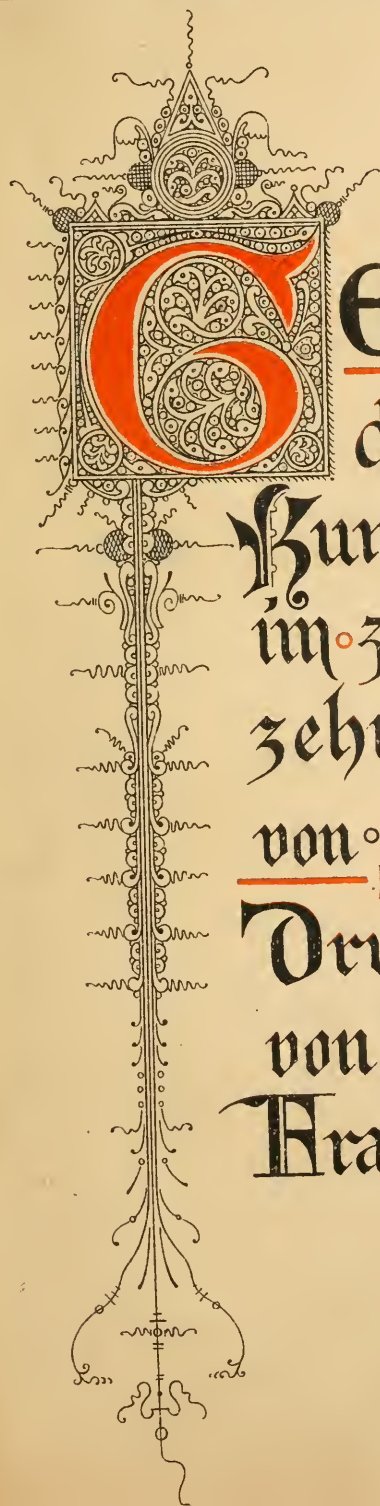 GE
d
Kun
im∘z
zehn
von∘
Dru
von
Fra